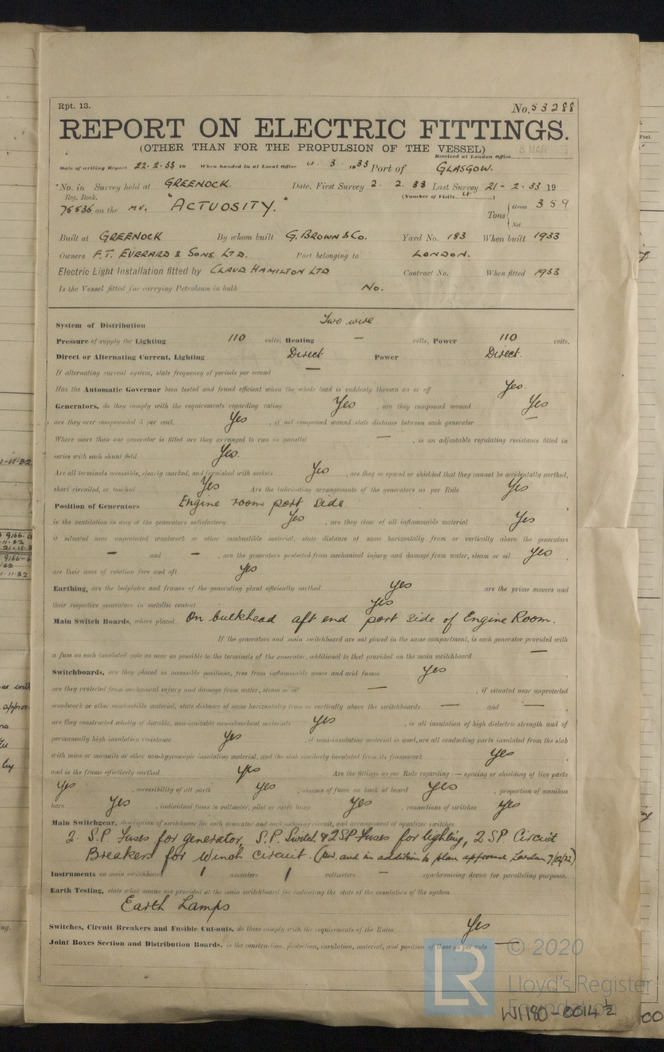 Rpt. 13. No. 53288
REPORT ON ELECTRIC FITTINGS.
(OTHER THAN FOR THE PROPULSION OF THE VESSEL)
Received at London Office
Date of writing Report 22.2.33 19 When handed in at Local Office 4.3.1933 Port of GLASGOW.
No. in Survey held at GREENOCK. Date, First Survey 2.2.33 Last Survey 21-2.33 19
Reg. Book. (Number of Visits 4)
75536 on the M.V. "ACTUOSITY." Tons Gross 359
Net
Built at GREENOCK By whom built G. BROWN & CO. Yard No. 183 When built 1933
Owners F.T. EVERARD & SONS LTD. Port belonging to LONDON.
Electric Light Installation fitted by CLAUD HAMILTON LTD Contract No. When fitted 1933
Is the Vessel fitted for carrying Petroleum in bulk No.
System of Distribution Two wire
Pressure of supply for Lighting 110 volts, Heating — volts, Power 110 volts.
Direct or Alternating Current, Lighting Direct Power Direct.
If alternating current system, state frequency of periods per second —
Has the Automatic Governor been tested and found efficient when the whole load is suddenly thrown on or off Yes.
Generators, do they comply with the requirements regarding rating Yes, are they compound wound Yes
are they over compounded 5 per cent. Yes, if not compound wound state distance between each generator —
Where more than one generator is fitted are they arranged to run in parallel —, is an adjustable regulating resistance fitted in
series with each shunt field Yes.
Are all terminals accessible, clearly marked, and furnished with sockets Yes, are they so spaced or shielded that they cannot be accidentally earthed,
short circuited, or touched Yes Are the lubricating arrangements of the generators as per Rule Yes
Position of Generators Engine room port side
is the ventilation in way of the generators satisfactory Yes, are they clear of all inflammable material Yes
if situated near unprotected woodwork or other combustible material, state distance of same horizontally from or vertically above the generators
— and —, are the generators protected from mechanical injury and damage from water, steam or oil Yes
are their axes of rotation fore and aft Yes
Earthing, are the bedplates and frames of the generating plant efficiently earthed Yes are the prime movers and
their respective generators in metallic contact Yes
Main Switch Boards, where placed On bulkhead aft end port side of Engine Room.
If the generators and main switchboard are not placed in the same compartment, is each generator provided with
a fuse on each insulated pole as near as possible to the terminals of the generator, additional to that provided on the main switchboard —
Switchboards, are they placed in accessible positions, free from inflammable gases and acid fumes Yes
are they protected from mechanical injury and damage from water, steam or oil —, if situated near unprotected
woodwork or other combustible material, state distance of same horizontally from or vertically above the switchboards — and —
are they constructed wholly of durable, non-ignitable non-absorbent materials Yes, is all insulation of high dielectric strength and of
permanently high insulation resistance Yes, if semi-insulating material is used, are all conducting parts insulated from the slab
with mica or micanite or other non-hygroscopic insulating material, and the slab similarly insulated from its framework Yes
and is the frame effectively earthed Yes Are the fittings as per Rule regarding:— spacing or shielding of live parts
Yes, accessibility of all parts Yes, absence of fuses on back of board Yes, proportion of omnibus
bars Yes, individual fuses to voltmeter, pilot or earth lamp Yes, connections of switches Yes
Main Switchgear, description of switchgear for each generator and each outgoing circuit, and arrangement of equaliser switches
2. S.P. Fuses for generator, S.P. Switch & 2 SP Fuses for lighting, 2 SP Circuit
Breakers for Winch circuit.
Instruments on main switchboard 1 ammeters 1 voltmeters — synchronising device for paralleling purposes.
Earth Testing, state what means are provided at the main switchboard for indicating the state of the insulation of the system
Earth Lamps
Switches, Circuit Breakers and Fusible Cut-outs, do these comply with the requirements of the Rules Yes
Joint Boxes Section and Distribution Boards, is the construction, protection, insulation, material, and position of these as per rule —
© 2020
LR
Lloyd's Register
Foundation
W1180-0014½